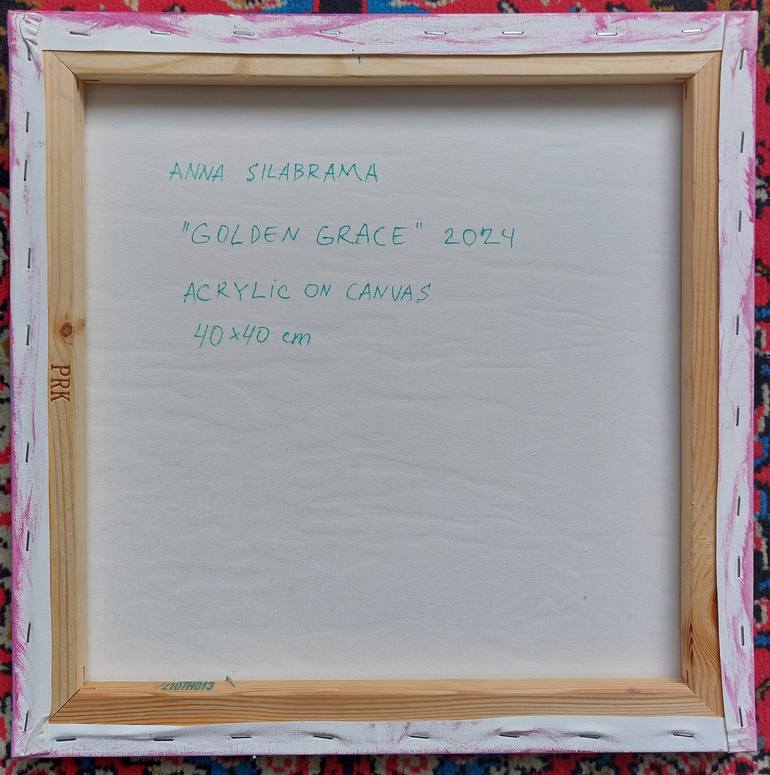 ANNA SILABRAMA
"GOLDEN GRACE" 2024
ACRYLIC ON CANVAS
40x40 cm
PRK
2107H013